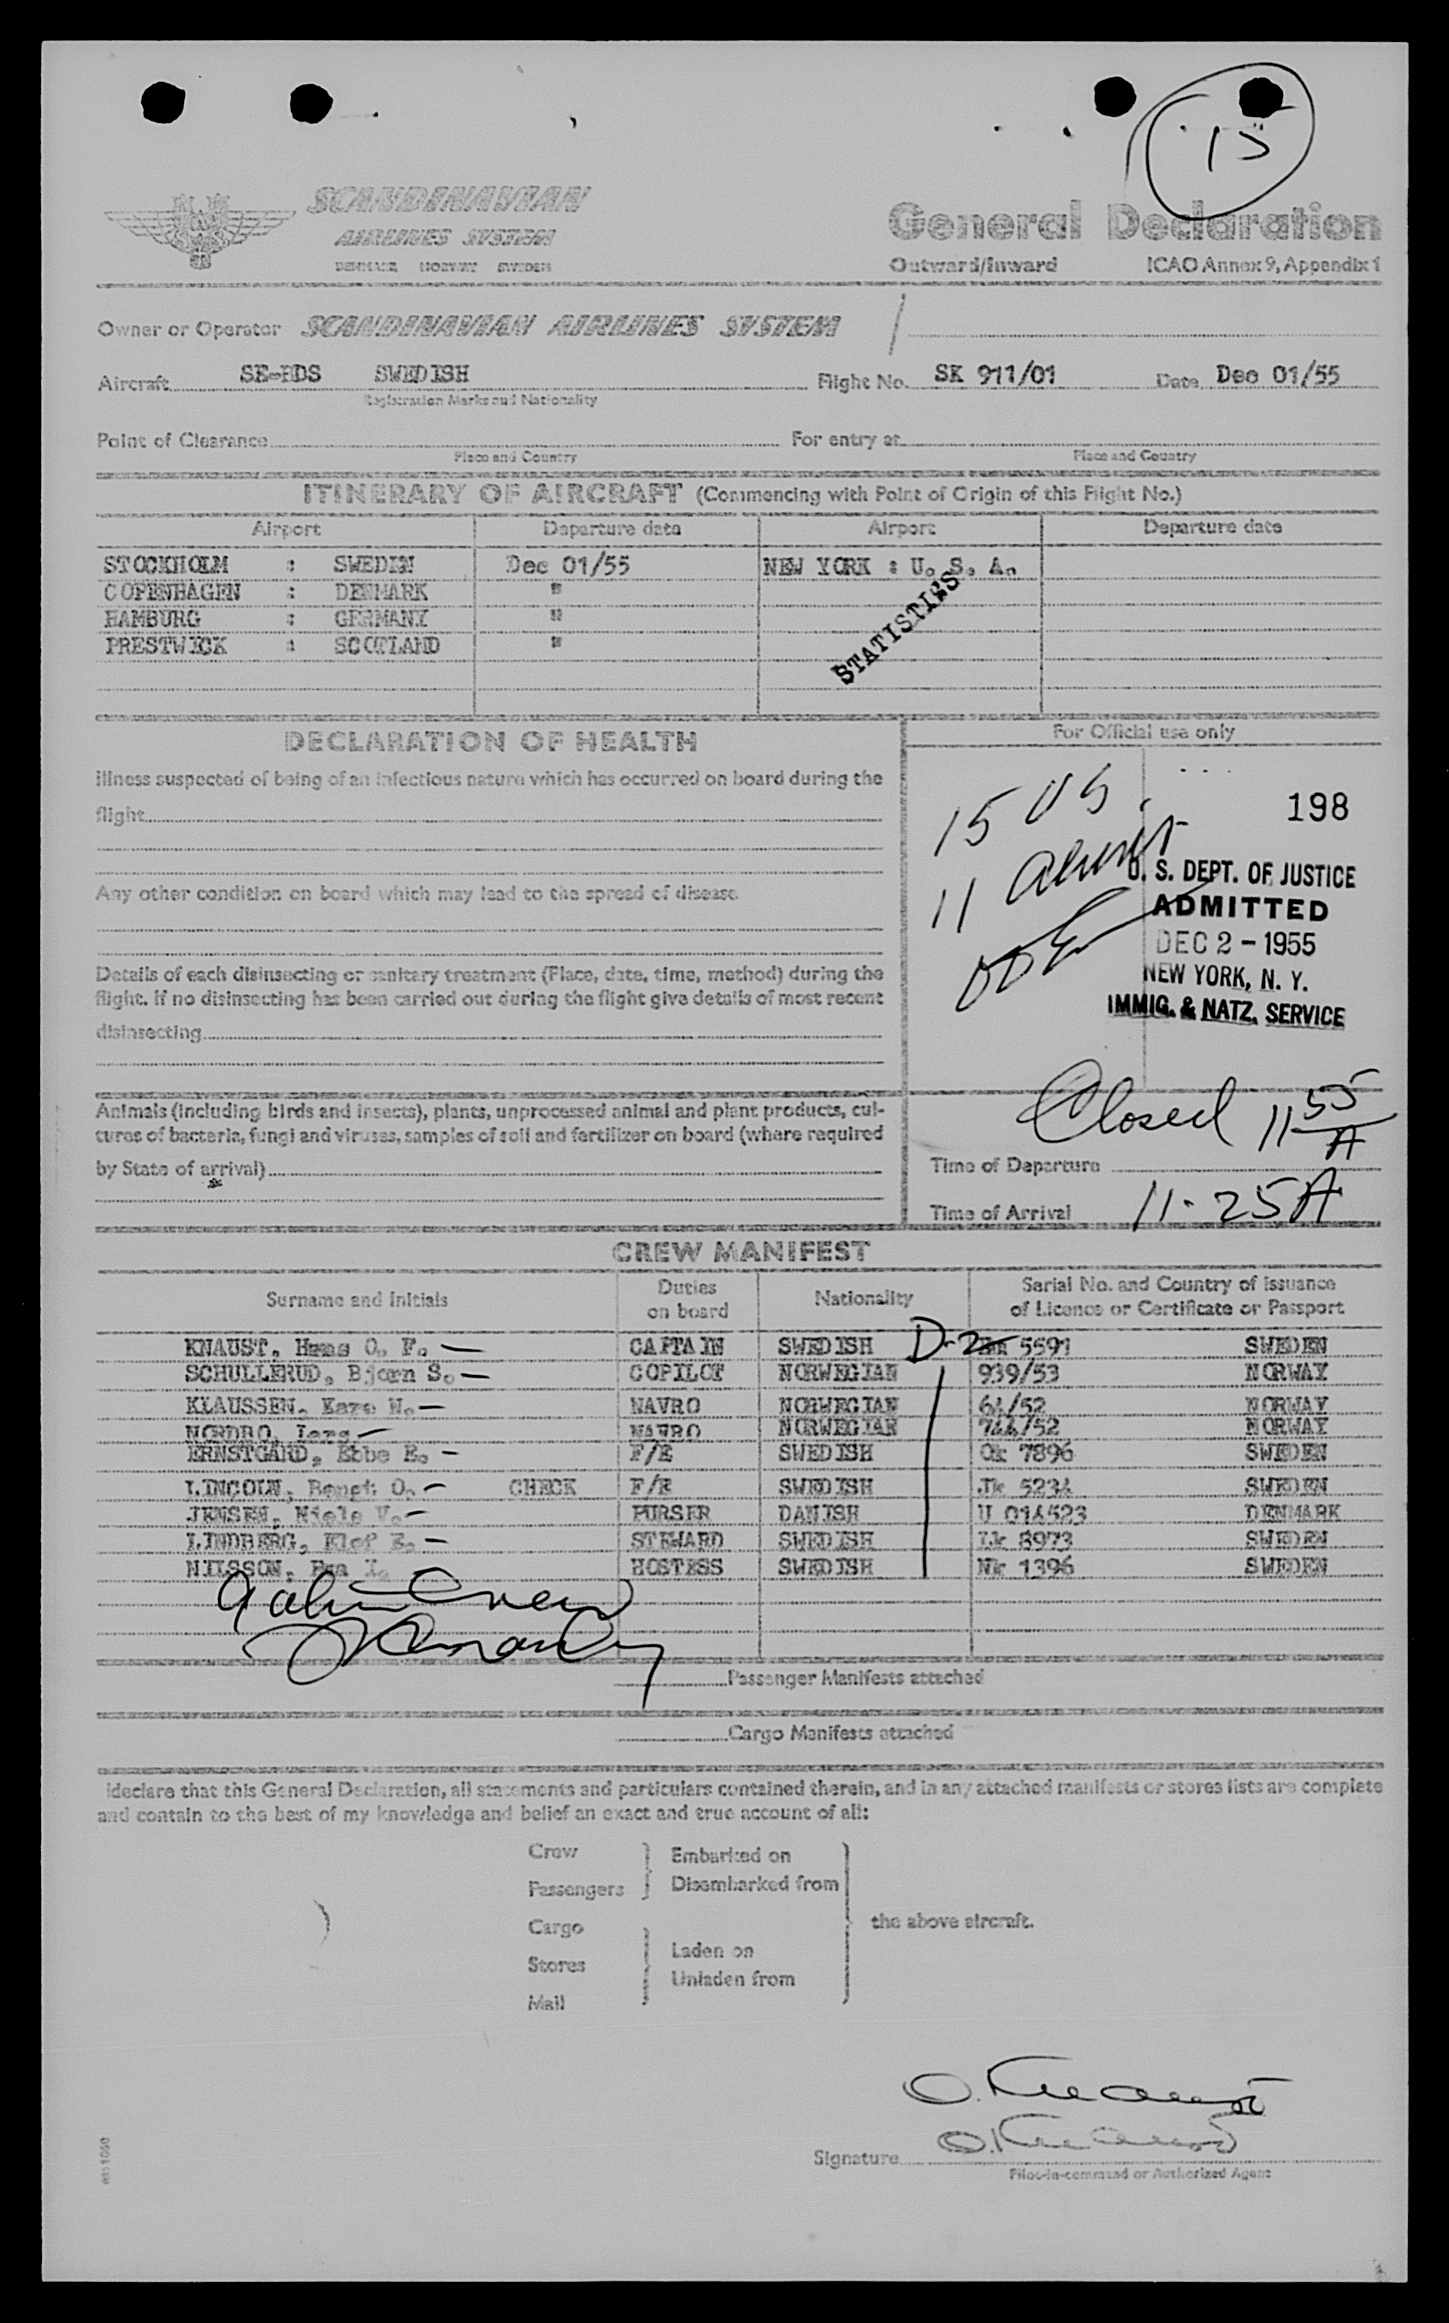 15
SCANDINAVIAN
AIRLINES SYSTEM
DENMARK NORWAY SWEDEN
General Declaration
Outward/Inward ICAO Annex 9, Appendix 1
Owner or Operator SCANDINAVIAN AIRLINES SYSTEM
Aircraft SE-BDS SWEDISH Flight No. SK 911/01 Date Dec 01/55
Registration Marks and Nationality
Point of Clearance For entry at
Place and Country Place and Country
ITINERARY OF AIRCRAFT (Commencing with Point of Origin of this Flight No.)
Airport Departure date Airport Departure date
STOCKHOLM : SWEDEN Dec 01/55 NEW YORK : U. S. A.
COPENHAGEN : DENMARK "
HAMBURG : GERMANY "
PRESTWICK : SCOTLAND "
STATISTICS
DECLARATION OF HEALTH
For Official use only
Illness suspected of being of an infectious nature which has occurred on board during the
flight
Any other condition on board which may lead to the spread of disease
Details of each disinsecting or sanitary treatment (Place, date, time, method) during the
flight. If no disinsecting has been carried out during the flight give details of most recent
disinsecting
15 US
11
198
U. S. DEPT. OF JUSTICE
ADMITTED
DEC 2 - 1955
NEW YORK, N. Y.
IMMIG. & NATZ. SERVICE
Animals (including birds and insects), plants, unprocessed animal and plant products, cul-
tures of bacteria, fungi and viruses, samples of soil and fertilizer on board (where required
by State of arrival)
Closed 11 55 A
Time of Departure
Time of Arrival 11.25 A
CREW MANIFEST
Surname and Initials Duties on board Nationality Serial No. and Country of Issuance of Licence or Certificate or Passport
KNAUST, Hans O. F. — CAPTAIN SWEDISH D-2 5591 SWEDEN
SCHULLERUD, Bjorn S. — COPILOT NORWEGIAN 939/53 NORWAY
KLAUSSEN, Kare H. — NAVRO NORWEGIAN 64/52 NORWAY
NORDBO, Lars — NAVRO NORWEGIAN 744/52 NORWAY
ERNSTGÅRD, Ebbe E. — F/E SWEDISH Ok 7896 SWEDEN
LINCOLN, Bengt O. — CHECK F/E SWEDISH Jk 5234 SWEDEN
JENSEN, Niels V. — PURSER DANISH U 014523 DENMARK
LINDBERG, Elof E. — STEWARD SWEDISH Lk 8973 SWEDEN
NILSSON, HOSTESS SWEDISH Nk 1396 SWEDEN
Passenger Manifests attached
Cargo Manifests attached
I declare that this General Declaration, all statements and particulars contained therein, and in any attached manifests or stores lists are complete
and contain to the best of my knowledge and belief an exact and true account of all:
Crew
Passengers
Embarked on
Disembarked from
Cargo
Stores
Mail
Laden on
Unladen from
the above aircraft.
O. Knaust
O. Knaust
Signature
Pilot-in-command or Authorized Agent